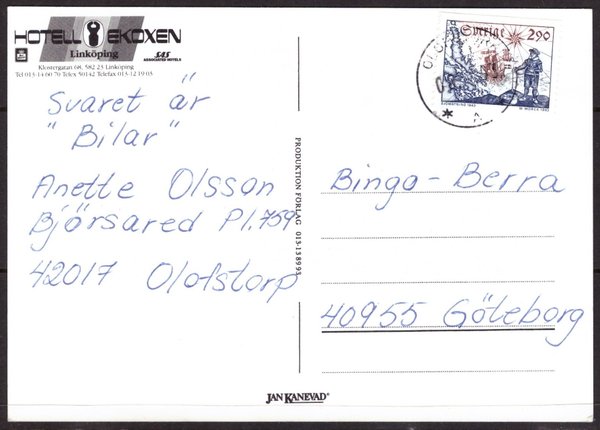 HOTELL EKOXEN
Linköping
SAS
ASSOCIATED HOTELS
Klostergatan 68, 582 23 Linköping
Tel 013-14 60 70 Telex 50142 Telefax 013-12 19 03
Svaret är
"Bilar"
Anette Olsson
Björsared Pl.759
42017 Olofstorp
PRODUKTION FÖRLAG 013-138993
Sverige 290
Bingo-Berra
40955 Göteborg
JAN KANEVAD®